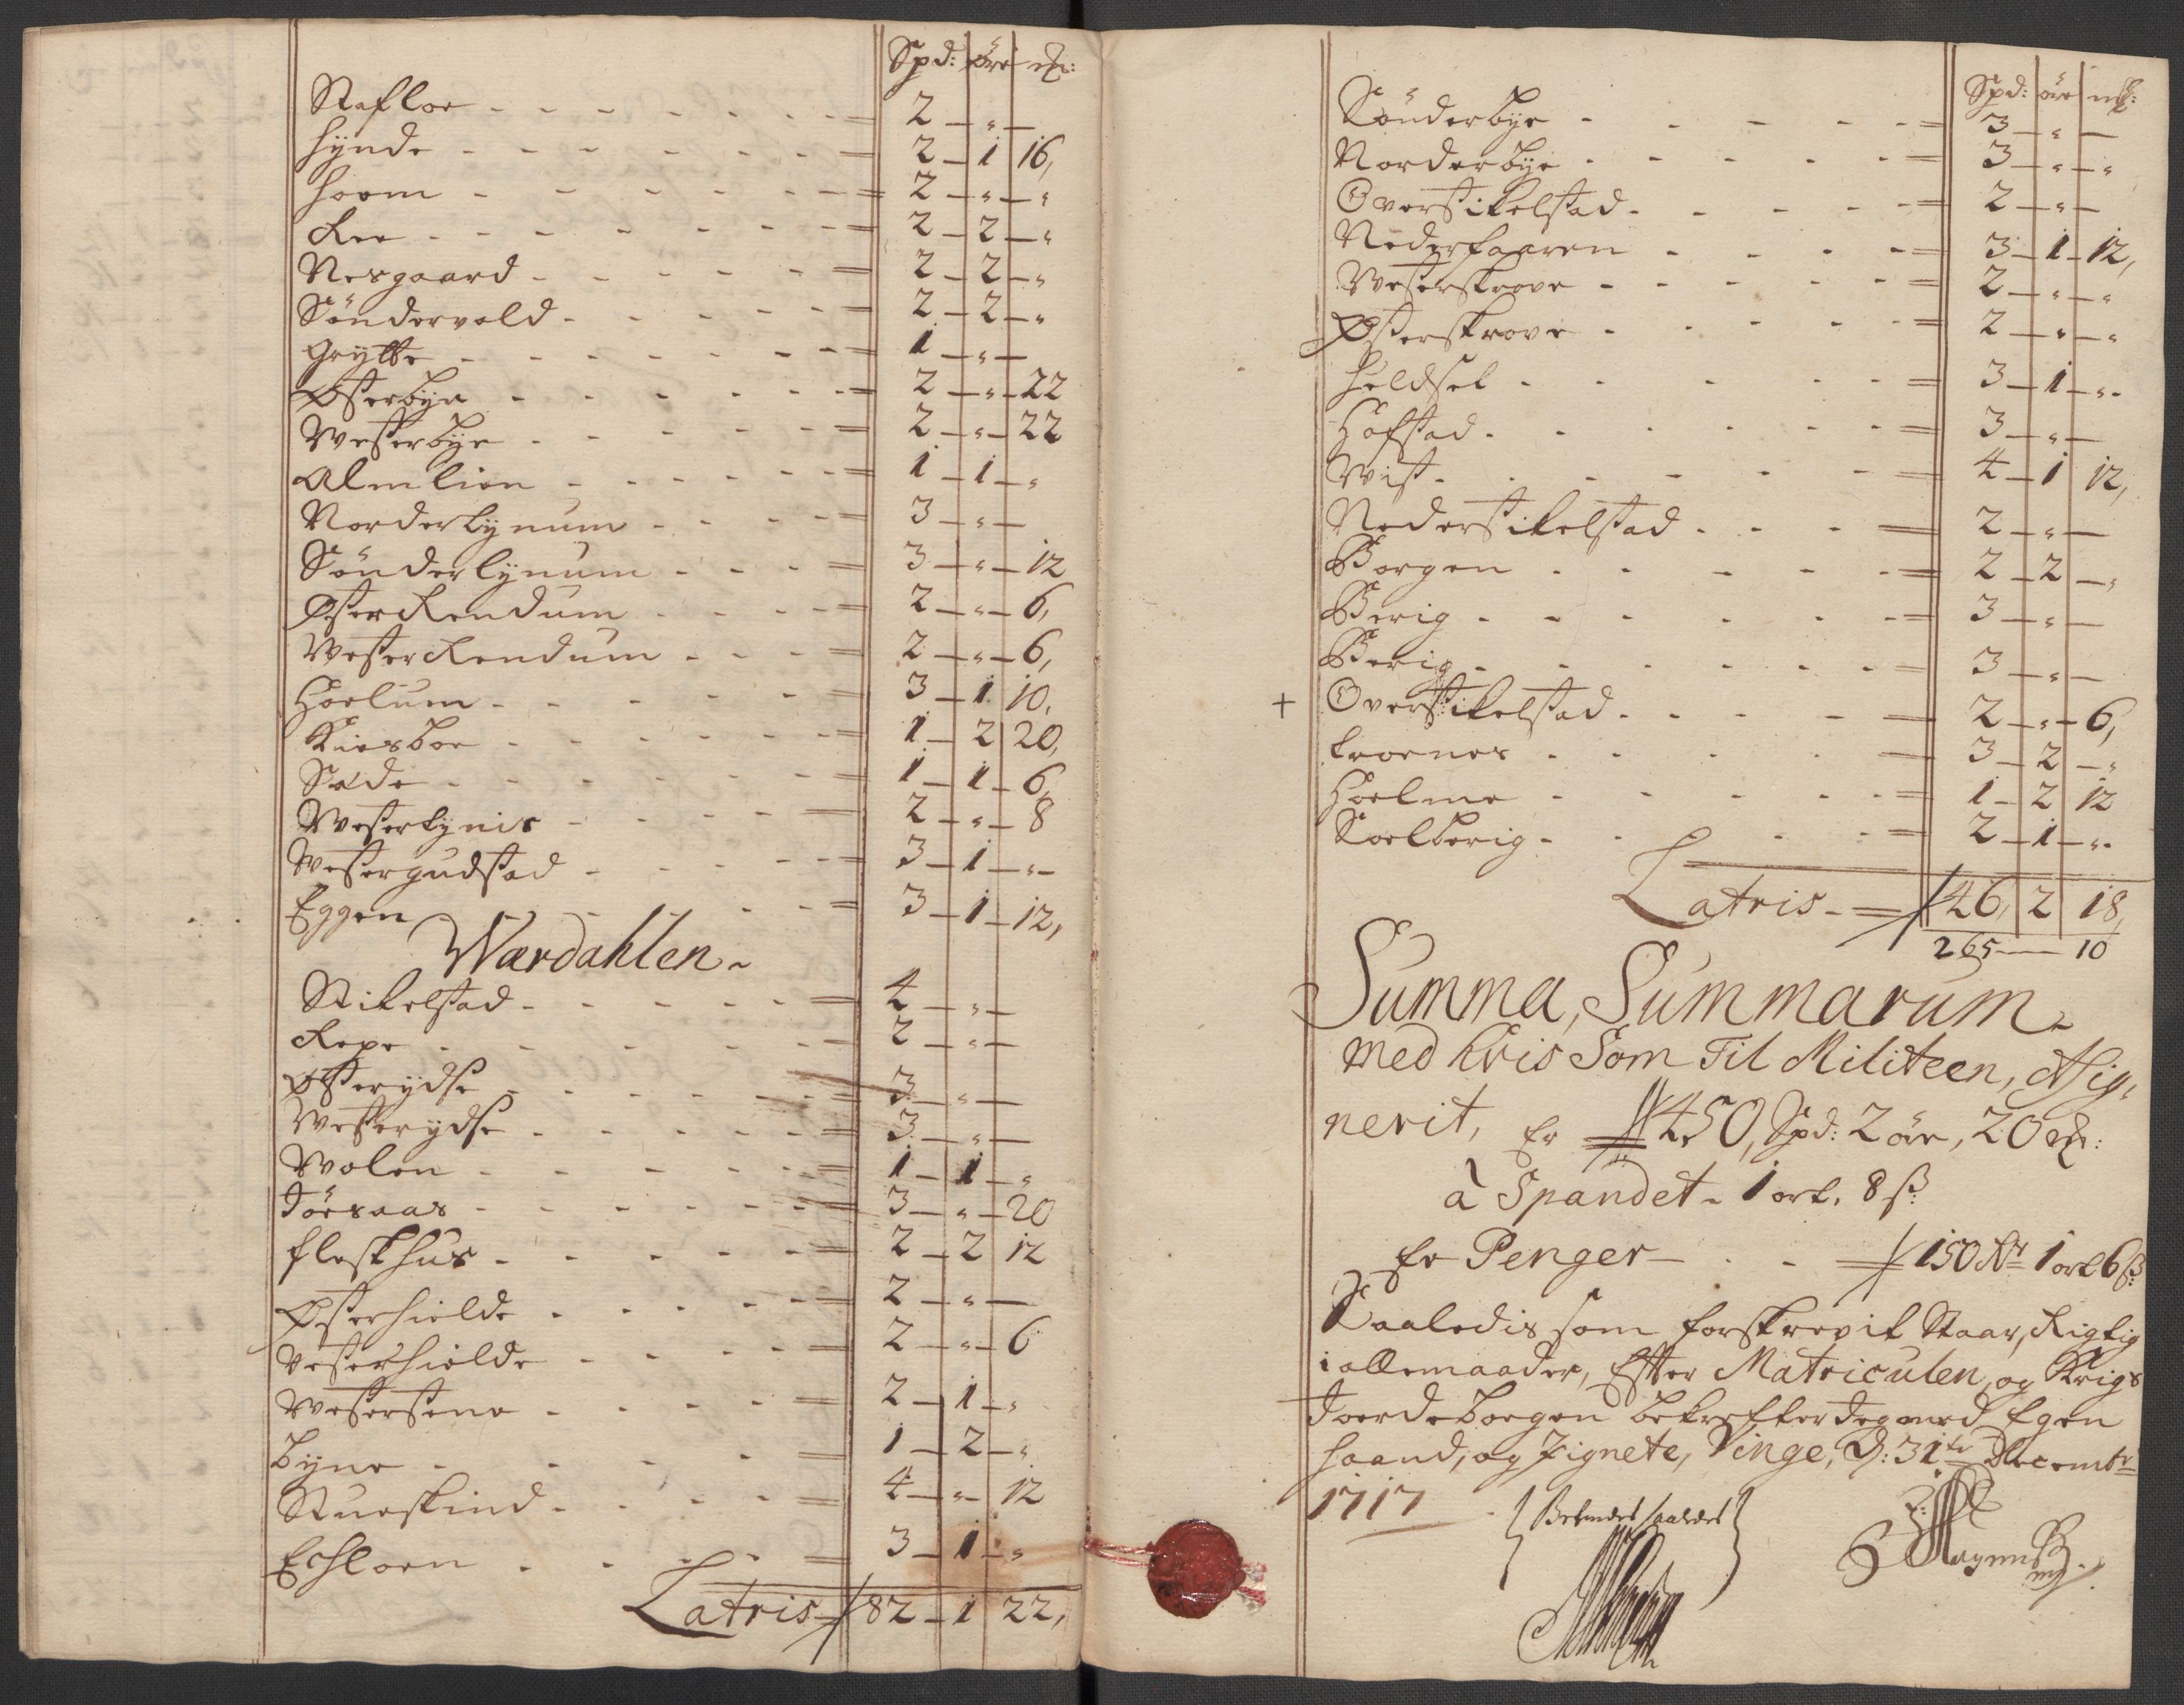 Spd: öre
Stafloe - - - 2 - " -
Hynde - - - 2 - 1 16,
Hoom - - - 2 - " - "
Ree - - - 2 - 2 - "
Nesgaard - - - 2 - 2 - "
Söndervold - - - 2 - 2 - "
Grytte - - - 1 - " -
Østerbÿe - - - 2 - " - 22
Westerbÿe - - - 2 - " - 22
Almlien - - - 1 - 1 - "
Norderlynum - - - 3 - " -
Sönderlÿnum - - - 3 - " - 12
Øster Rendum - - - 2 - " - 6,
Wester Rendum - - - 2 - " - 6,
Hoelum - - - 3 - 1 10,
Kiesboe - - - 1 - 2 20,
Sæde - - - 1 - 1 - 6,
Westerkynis - - - 2 - " - 8
Westergudstad - - - 3 - 1 - " -
Eggen - - - 3 - 1 - 12,
Wærdahlen -
Stikelstad - - - 4 - " -
Repe - - - 2 - " -
Østerydse - - - 3 - " -
Westerydse - - - 3 - " -
Wolen - - - 1 - 1 - "
Jöesaas - - - 3 - " - 20
fleskhus - - - 2 - 2 12
Østerhielde - - - 2 - " -
Vesterhielde - - - 2 - " - 6
Westersene - - - 2 - 1 - "
Byne - - - 1 - 2 - "
Stueskind - - - 4 - " - 12
Echloen - - - 3 - 1 - "
Latris 82 - 1 22,
Spd: öre
Sönderbÿe - - - 3 - " -
Norderbÿe - - - 3 - " - "
Overstikelstad - - - 2 - " -
Nederhaaren - - - 3 - 1 - 12,
Westerskrove - - - 2 - " - "
Østerskrove - - - 2 - " - "
Heldsel - - - 3 - 1 - " -
Hofstad - - - 3 - " -
Wist - - - 4 - 1 12,
Nederstikelstad - - - 2 - " -
Borgen - - - 2 - 2 - "
Berig - - - 3 - " -
Berig - - - 3 - " -
+ Overstikelstad - - - 2 - " - 6,
kroenes - - - 3 - 2 - "
Hoelme - - - 1 - 2 12
Koelberig - - - 2 - 1 - "
Latris - 46, 2 18,
265 - 10
Summa, Summarum -
med hvis Som Til Militeen, Asig,
nerit, Er 450, Spd: 2 öre, 20
à Spandet - 1 ort. 8 ß
Er Penger - - 150 Rd 1 ort 6 ß
Saaledis som forskrevit Staar, Rigtig
i allemaader, Efter Matriculen, og Krigs
Joerdeboegen bekrefter Jeg med Egen
haand, og Zignete, Vinge, D: 31te Decembr
1717 - Befindes saaledes